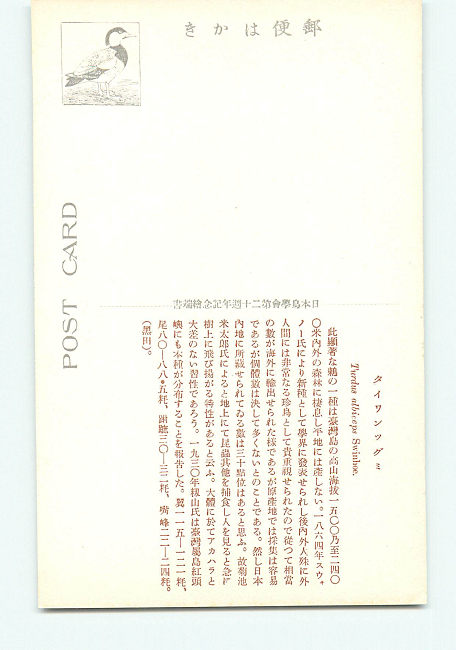 郵便はかき
POST CARD
日本鳥學會第二十週年記念繪端書
タイワンツグミ
Turdus albiceps Swinhoe.
此顯著な鶫の一種は臺灣島の高山海拔一五〇〇乃至二四〇
〇米内外の森林に棲息し平地には產しない。一八六四年スウ
ノー氏により新種として學界に發表せられし後内外人殊に外
人間には非常なる珍鳥として貴重視せられたので從つて相當
の數が海外に輸出せられた樣であるが原產地では採集は容易
であるが個體數は決して多くないとのことである。然し日本
内地に所藏せられてゐる數は三十點位はあると思ふ。故菊池
米太郎氏によると地上にて昆蟲其他を捕食し人を見ると急に
樹上に飛び揚がる習性があると云ふ。大體に於てアカハラと
大差のない習性であろう。一九三〇年 山氏は臺灣屬島紅頭
嶼にも本種が分布することを報告した。翼一一五—一二一粍、
尾八〇—八八・五粍、跗蹠三〇—三二粍、嘴峰二二—二四粍。
(黑田)。